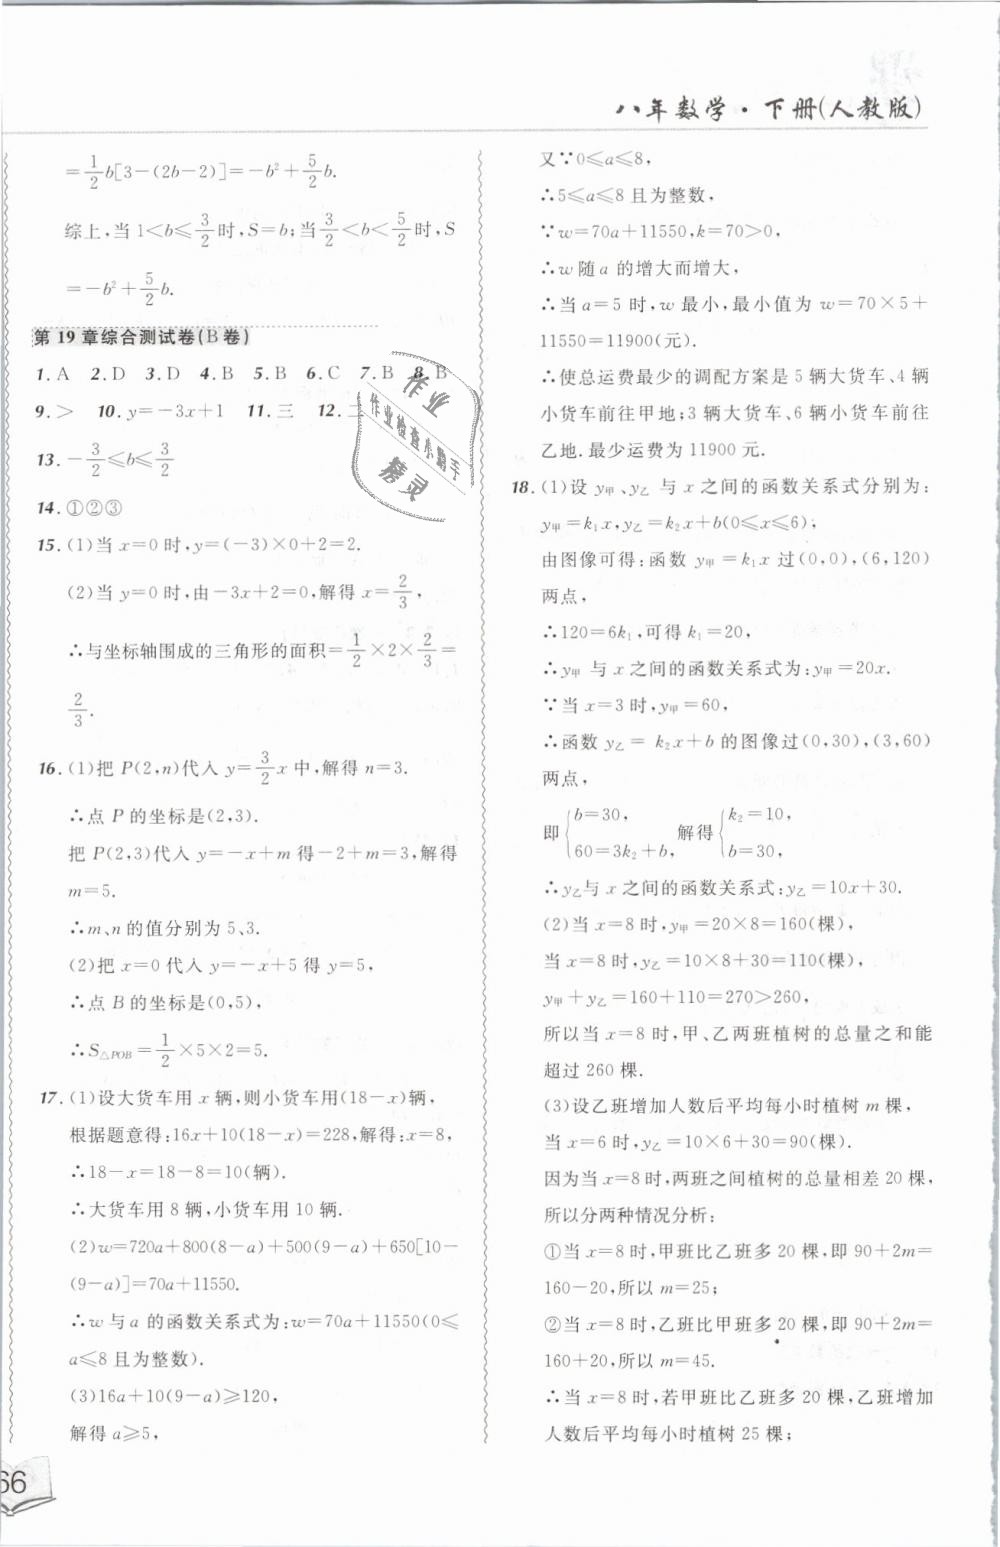 八年数学·下册(人教版)
=1/2b[3-(2b-2)]=-b²+5/2b.
综上,当1<b≤3/2时,S=b;当3/2<b<5/2时,S
=-b²+5/2b.
第19章综合测试卷(B卷)
1.A 2.D 3.D 4.B 5.B 6.C 7.B 8.B
9.> 10.y=-3x+1 11.三 12.二
13.-3/2≤b≤3/2
14.①②③
15.(1)当x=0时,y=(-3)×0+2=2.
(2)当y=0时,由-3x+2=0,解得x=2/3,
∴与坐标轴围成的三角形的面积=1/2×2×2/3=
2/3.
16.(1)把P(2,n)代入y=3/2x中,解得n=3.
∴点P的坐标是(2,3).
把P(2,3)代入y=-x+m得-2+m=3,解得
m=5.
∴m、n的值分别为5、3.
(2)把x=0代入y=-x+5得y=5,
∴点B的坐标是(0,5),
∴S△POB=1/2×5×2=5.
17.(1)设大货车用x辆,则小货车用(18-x)辆,
根据题意得:16x+10(18-x)=228,解得:x=8,
∴18-x=18-8=10(辆).
∴大货车用8辆,小货车用10辆.
(2)w=720a+800(8-a)+500(9-a)+650[10-
(9-a)]=70a+11550.
∴w与a的函数关系式为:w=70a+11550(0≤
a≤8且为整数).
(3)16a+10(9-a)≥120,
解得a≥5,
又∵0≤a≤8,
∴5≤a≤8且为整数,
∵w=70a+11550,k=70>0,
∴w随a的增大而增大,
∴当a=5时,w最小,最小值为w=70×5+
11550=11900(元).
∴使总运费最少的调配方案是5辆大货车、4辆
小货车前往甲地;3辆大货车、6辆小货车前往
乙地.最少运费为11900元.
18.(1)设y甲、y乙与x之间的函数关系式分别为:
y甲=k₁x,y乙=k₂x+b(0≤x≤6);
由图像可得:函数y甲=k₁x过(0,0),(6,120)
两点,
∴120=6k₁,可得k₁=20,
∴y甲与x之间的函数关系式为:y甲=20x.
∵当x=3时,y甲=60,
∴函数y乙=k₂x+b的图像过(0,30),(3,60)
两点,
即{b=30, 60=3k₂+b, 解得{k₂=10, b=30,
∴y乙与x之间的函数关系式:y乙=10x+30.
(2)当x=8时,y甲=20×8=160(棵),
当x=8时,y乙=10×8+30=110(棵),
y甲+y乙=160+110=270>260,
所以当x=8时,甲、乙两班植树的总量之和能
超过260棵.
(3)设乙班增加人数后平均每小时植树m棵,
当x=6时,y乙=10×6+30=90(棵).
因为当x=8时,两班之间植树的总量相差20棵,
所以分两种情况分析:
①当x=8时,甲班比乙班多20棵,即90+2m=
160-20,所以m=25;
②当x=8时,乙班比甲班多20棵,即90+2m=
160+20,所以m=45.
∴当x=8时,若甲班比乙班多20棵,乙班增加
人数后平均每小时植树25棵;
作业
作业检查小助手
精灵
66